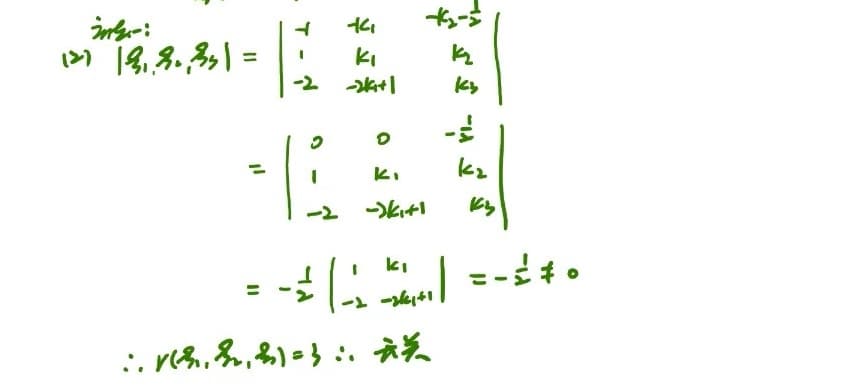 方法一:
(2) |ξ₁, ξ₂, ξ₃| = | -1 -k₁ -k₂-1/2 |
| 1 k₁ k₂ |
| -2 -2k₁+1 k₃ |
= | 0 0 -1/2 |
| 1 k₁ k₂ |
| -2 -2k₁+1 k₃ |
= -1/2 | 1 k₁ |
| -2 -2k₁+1 | = -1/2 ≠ 0
∴ r(ξ₁, ξ₂, ξ₃) = 3 ∴ 无关